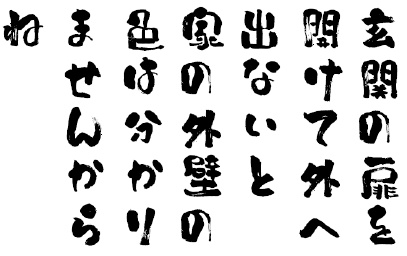 玄関の扉を
開けて外へ
出ないと
家の外壁の
色は分かり
ませんから
ね